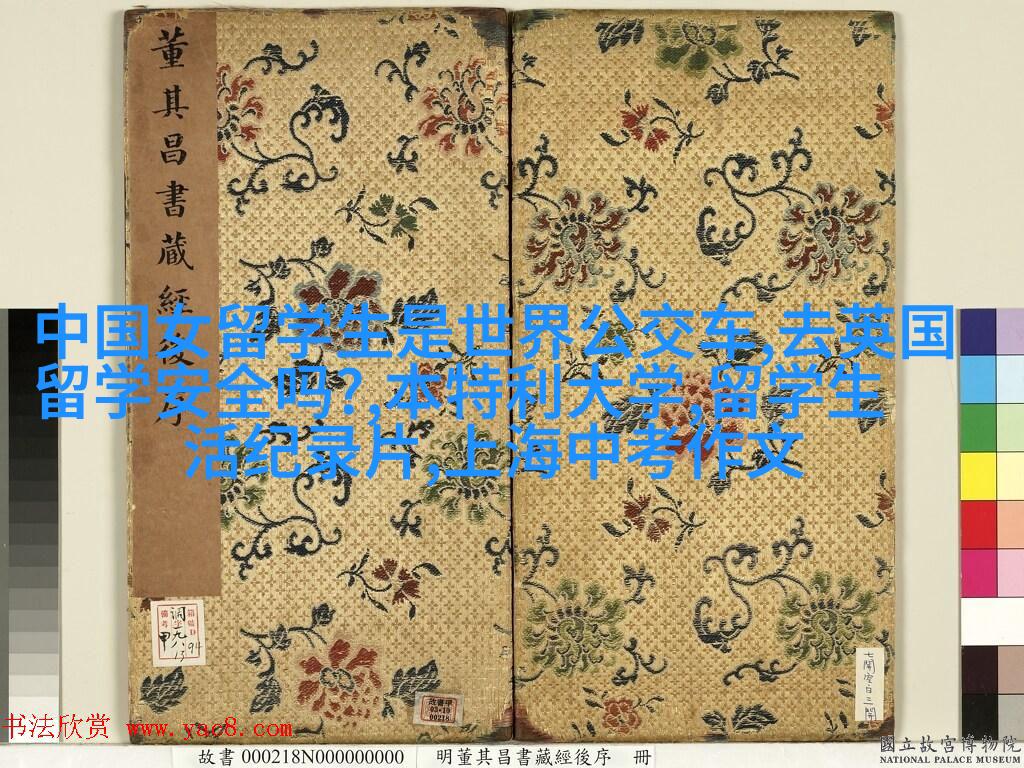 董其昌書藏經後序
中国女留学生是世界公交车,去英国
留学安全吗?,本特利大学,留学生
活纪录片,上海中考作文
故書甲
03•10
00218
七開空白三開
书法欣赏 www.yac8.com
故書 000218N000000000
明董其昌書藏經後序 冊
國立故宮博物院
NATIONAL PALACE MUSEUM